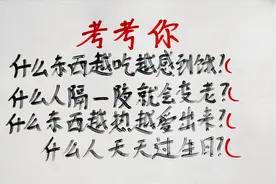 考考你
什么东西越吃越感到饿？（
什么人隔一段就会变老？（
什么东西越热越爱出来？（
什么人天天过生日？（